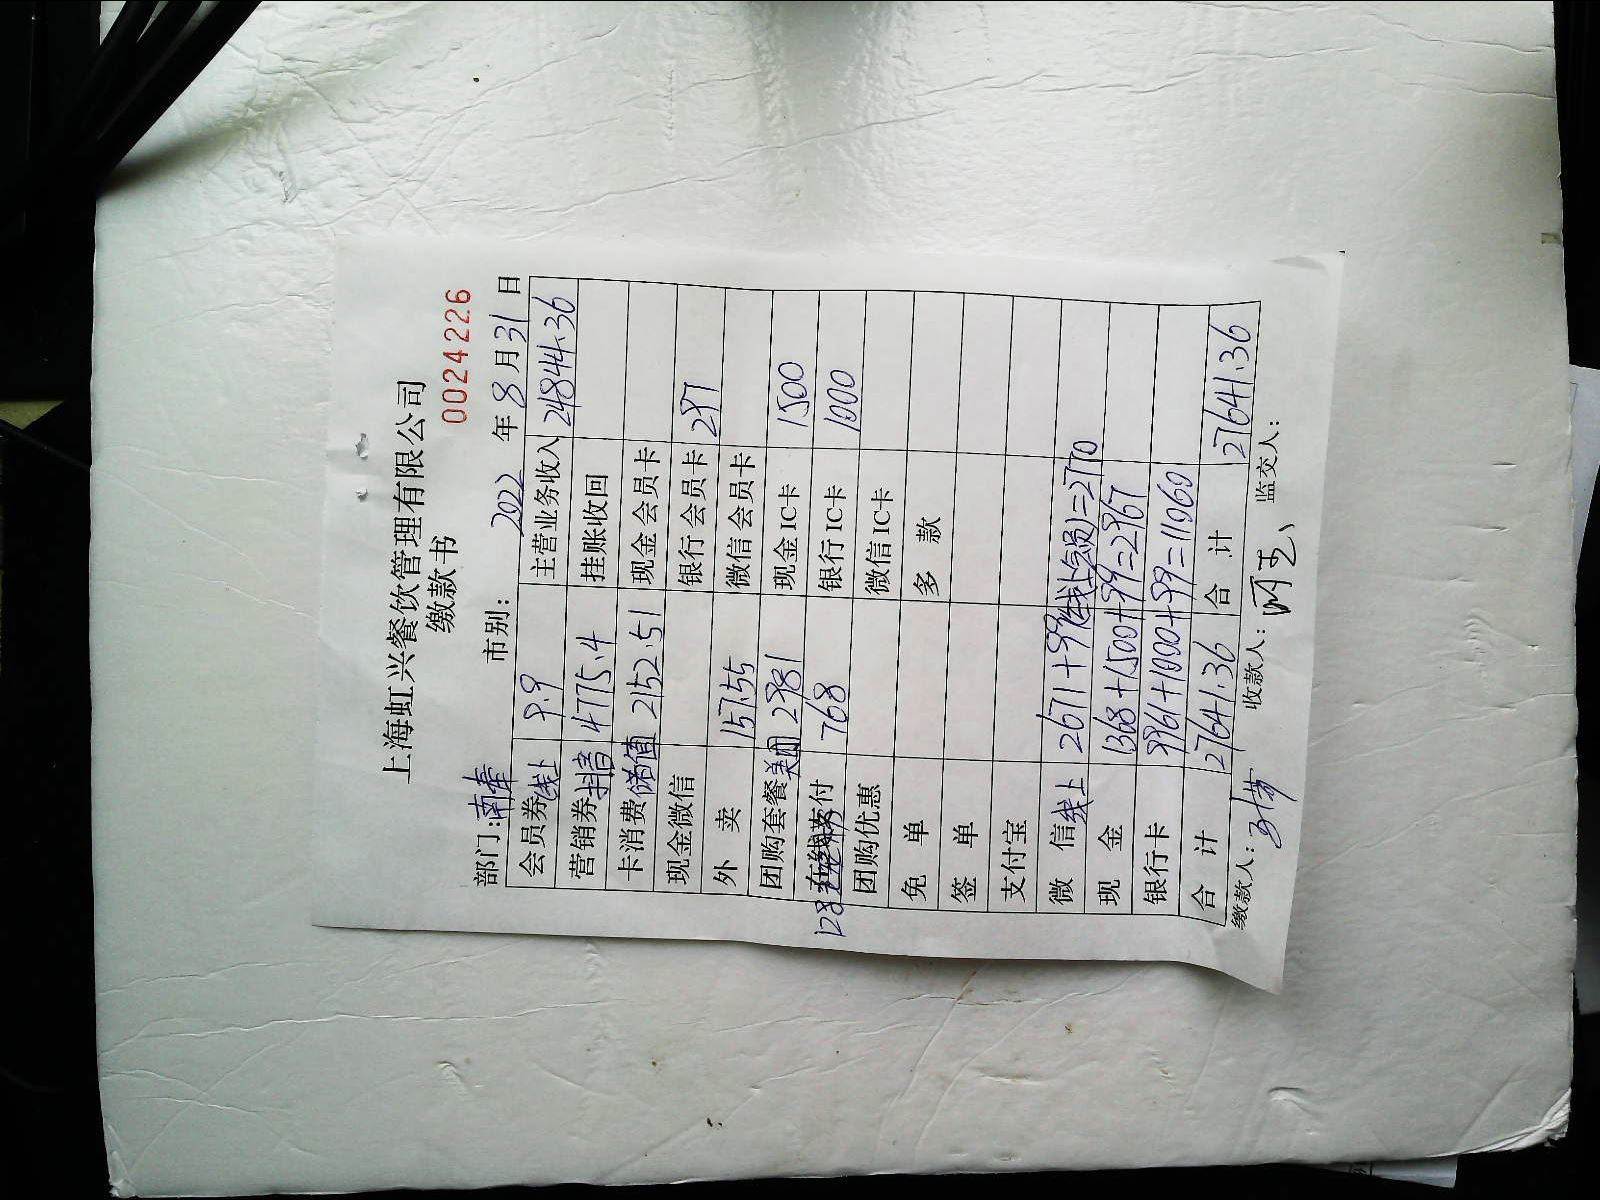 上海虹兴餐饮管理有限公司
缴款书
0024226
部门:南奉 市别: 2022 年 8 月 31 日
会员券线上 9.9 主营业务收入 24844.36
营销券抖音 4775.4 挂账收回
卡消费储值 2152.51 现金会员卡
现金微信 银行会员卡 297
外 卖 157.55 微信会员卡
团购套餐美团 2981 现金IC卡 1500
128 768 银行IC卡 1000
团购优惠 微信IC卡
免 单 多 款
签 单
支付宝
微 信线上 2671+99(线上会员)=2770
现 金 1368+1500+99=2967
银行卡 9961+1000+99=11060
合 计 27641.36 合 计 27641.36
缴款人: 收款人: 监交人: